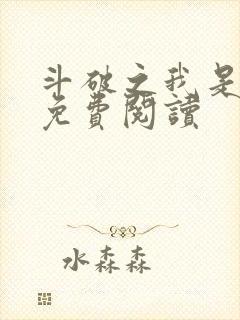 斗破之我是
免費閱讀
水森森